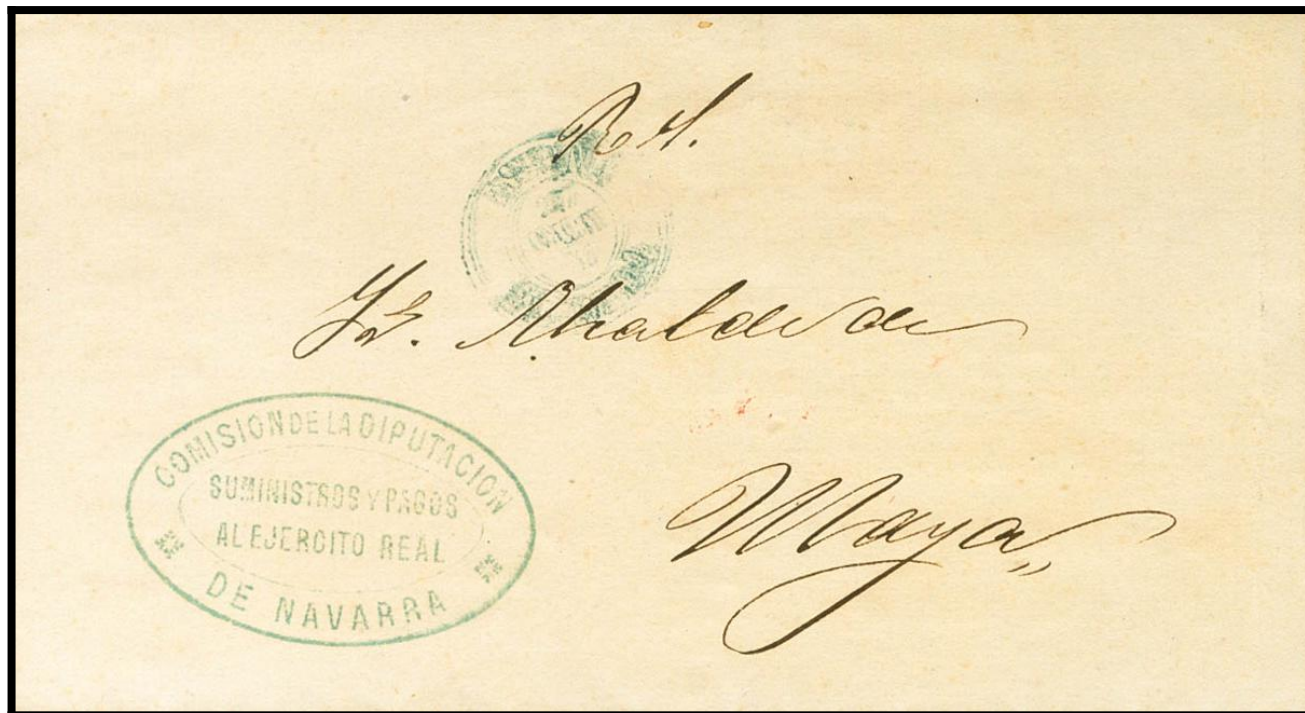 R. S.
Sr. Alcalde de
Maya
COMISION DE LA DIPUTACION
SUMINISTROS Y PAGOS
AL EJERCITO REAL
DE NAVARRA